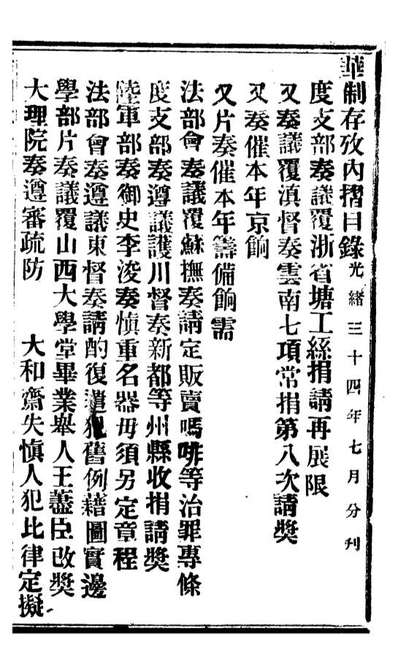 華制存攷內摺目錄 光緒三十四年七月分刊
度支部奏議覆浙省塘工絲捐請再展限
又奏議覆滇督奏雲南七項常捐第八次請獎
又奏催本年京餉
又片奏催本年籌備餉需
法部會奏議覆蘇撫奏請定販賣嗎啡等治罪專條
度支部奏遵議護川督奏新都等州縣收捐請獎
陸軍部奏御史李浚奏慎重名器毋須另定章程
法部會奏遵議東督奏請酌復遣犯舊例藉圖實邊
學部片奏議覆山西大學堂畢業舉人王藎臣改獎
大理院奏遵審疏防 大和齋失慎人犯比律定擬